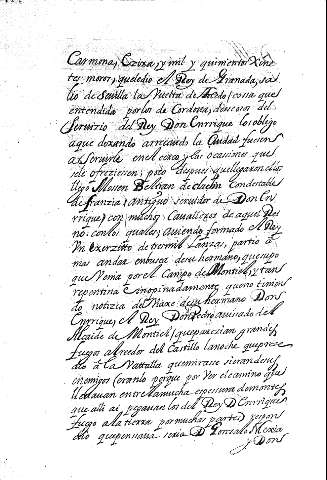 Carmona, Ezixa, y mil y quinientos Xine
tes moros, que le dio el Rey de Granada, sa
lio de Sevilla la Vuelta de Toledo, cossa que
entendido por los de Cordova, deseosos del
Servizio del Rey Don Enrrique los obligo
a que dexando arrecaudo la Ciudad fuesen
a servirle en el cerco y las ocasiones que
se le ofreziesen; poco despues que llegaron ellos
llego Mossen Beltran de Claquin Condestable
de franzia, antiguo servidor de Don En
rrique, con muchos Cavalleros de aquel Rei
no. con los quales aviendo formado el Rey
Un exerzito de tres mil Lanzas, partio a
mas andar en busca de su hermano, que supo
que Venia por el Campo de Montiel, y tan
repentina e inopinadamente, que no tenien
do notizia del Viaxe de su hermano Don
Enrrique, el Rey Don Pedro avisado del
Alcaide de Montiel, que parezian grandes
fuegos al redor del Castillo la noche que prece
dio a la Vatalla que mirase si eran de sus
enemigos (eranlo porque por Ver el camino que
llevavan entre la mucha espessura de montes
que alli ai pegavan los del Rey D. Enrrique
fuego a la tierra por muchas partes) respon
dio que pensava seria D. Gonzalo Mexia
y Don